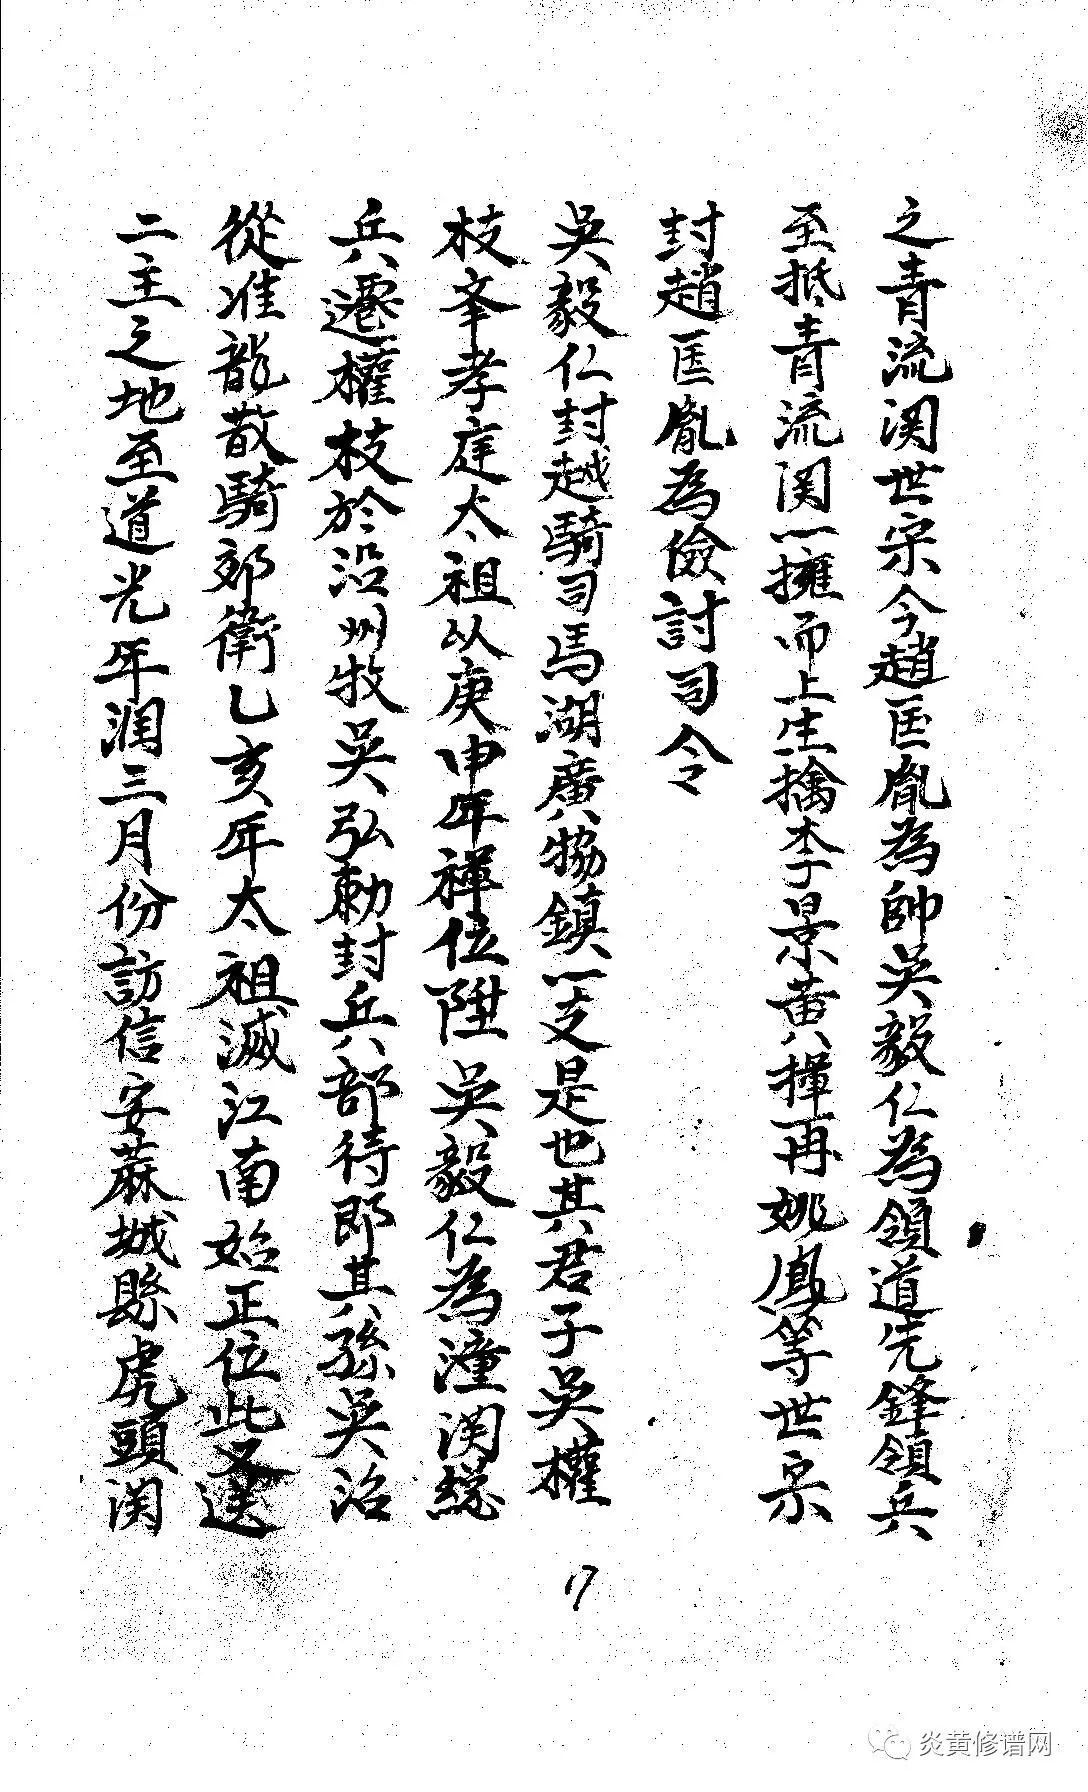 之青流関世宗令趙匡胤為帥吳毅仁為領道先鋒領兵
至抵青流関一擁而上生擒李景黄揮再姚鳳等世宗
封趙匡胤為儉討司令
吳毅仁封越騎司馬湖廣協鎮一支是也其君子吳權
枝奉孝庭太祖以庚申年禪位陞吳毅仁為潼関總
兵遷權枝於沿州牧吳弘勅封兵部待郎其孫吳治
從准龍散騎郊衛乙亥年太祖滅江南始正位此又送
二主之地至道光年润三月份訪信安蔴城縣虎頭関
17
炎黄修谱网